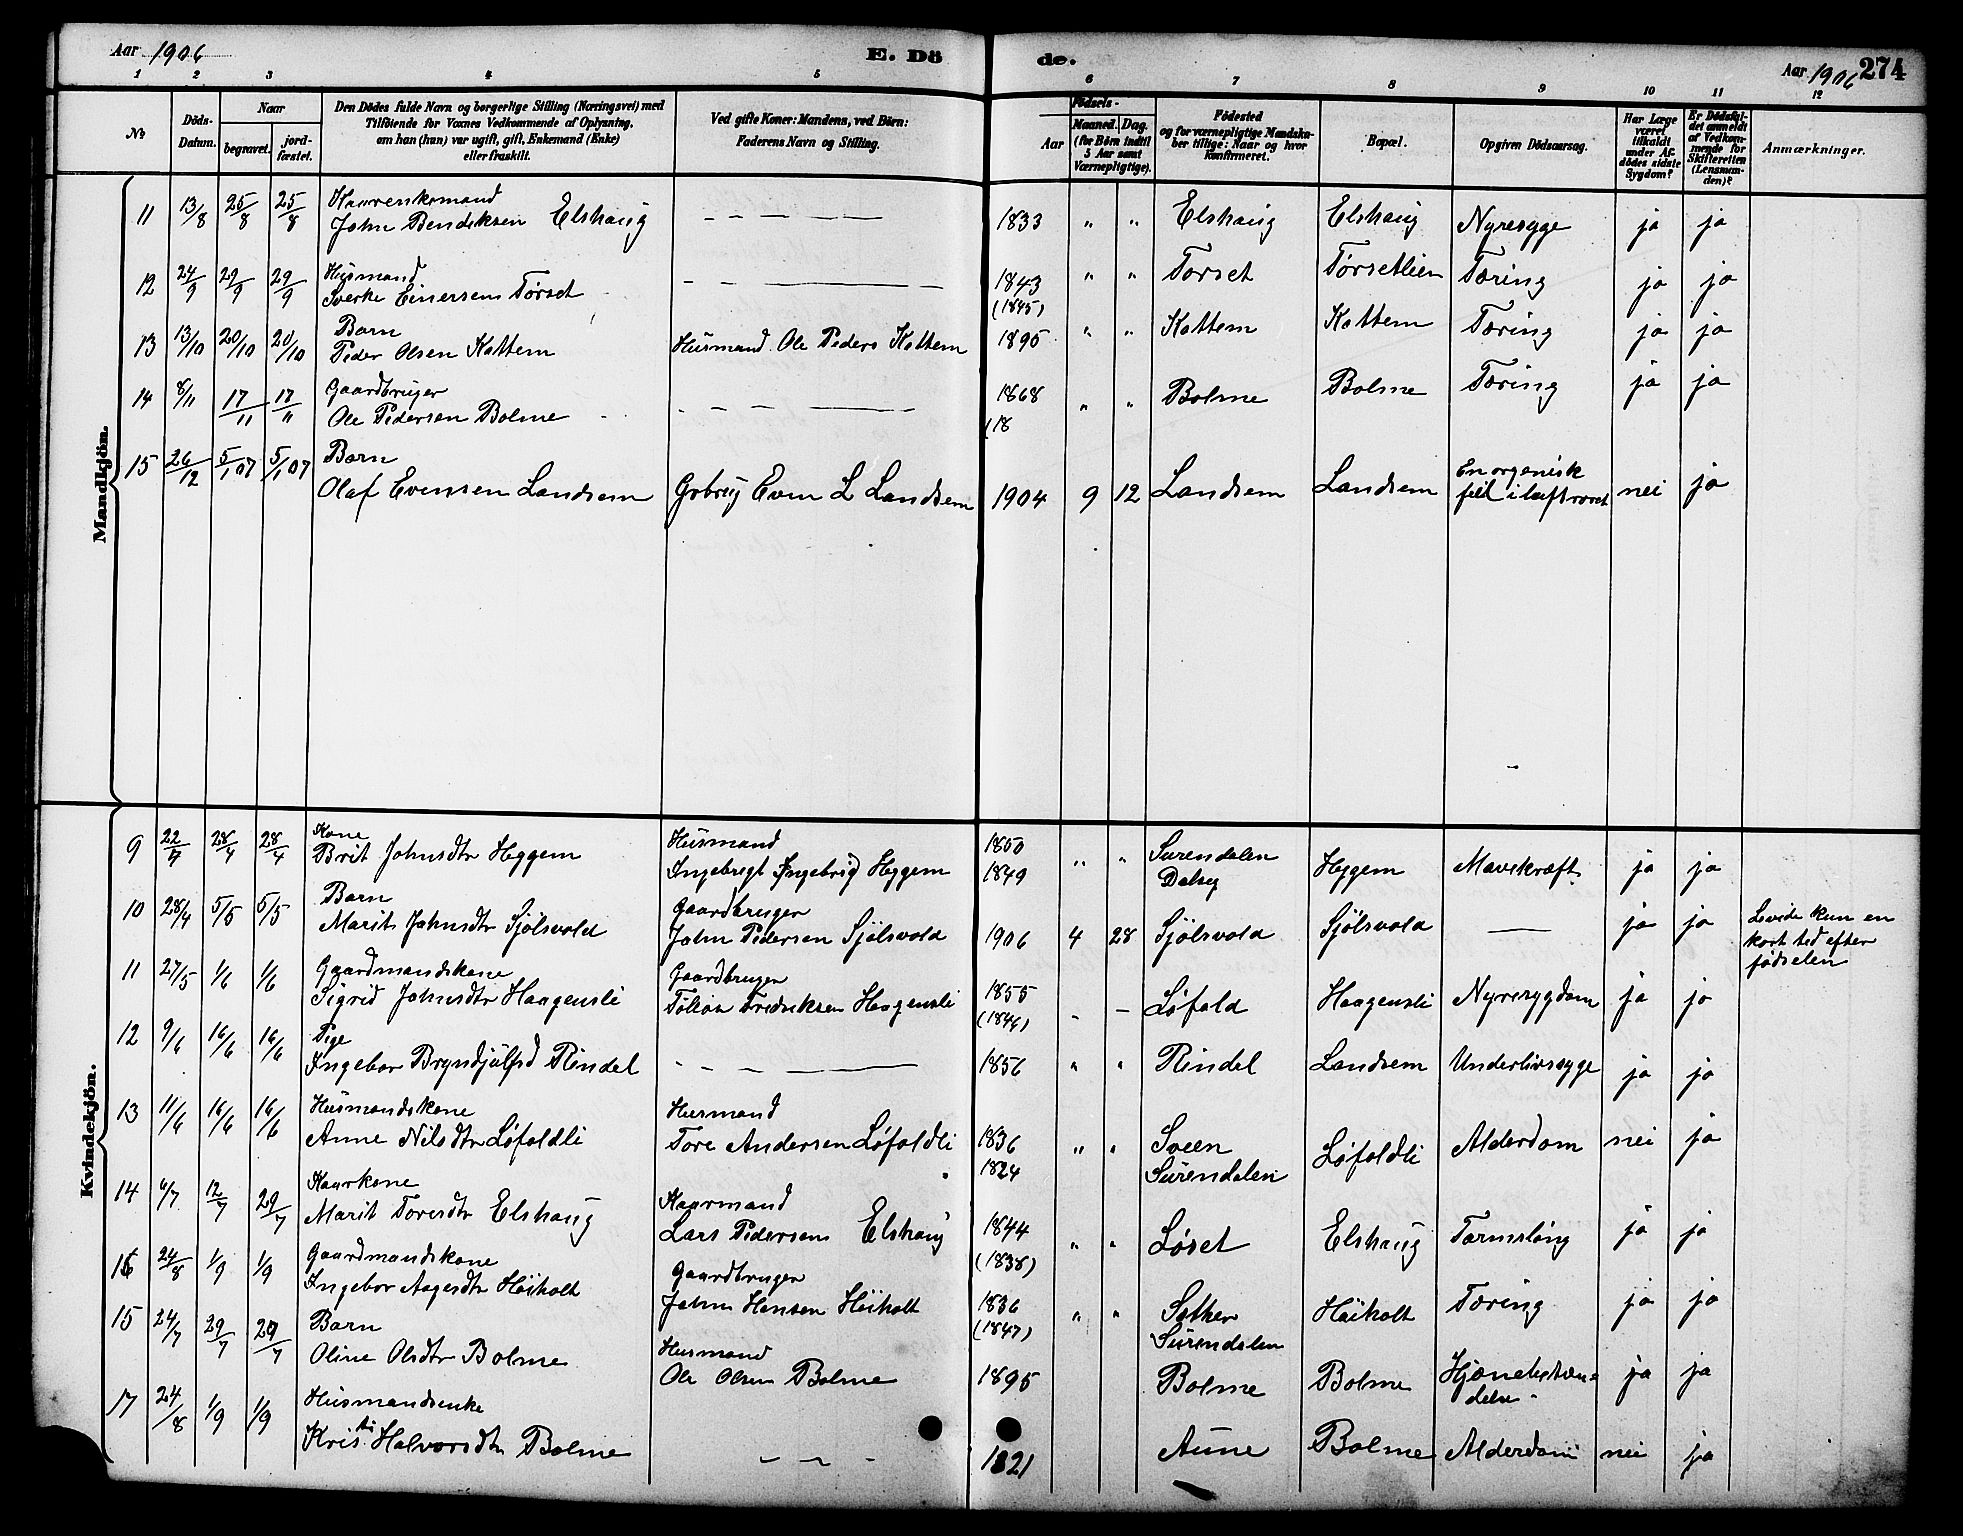 Aar 1906 E. Dö de. Aar 1906 274
1 2 3 4 5 6 7 8 9 10 11 12
No
Döds-Datum.
Naar
begravet. jord-fæstet.
Den Dödes fulde Navn og borgerlige Stilling (Næringsvei) med
Tilföiende for Voxnes Vedkommende af Oplysning,
om han (hun) var ugift, gift, Enkemand (Enke)
eller fraskilt.
Ved gifte Koner: Mandens, ved Börn:
Faderens Navn og Stilling.
Födsels-
Aar Maaned. Dag.
(for Börn indtil
5 Aar samt
Værnepligtige).
Födested
og for værnepligtige Mandska-
ber tillige: Naar og hvor
Konfirmeret.
Bopæl.
Opgiven Dödsaarsag.
Har Læge
været
tilkaldt
under Af-
dödes sidste
Sygdom?
Er Dödsfal-
det anmeldt
af Vedkom-
mende for
Skifteretten
(Lensman-
den)?
Anmærkninger.
Mandkjön.
11 13/8 25/8 25/8 John Bendiksen Elshaug - - - — — — 1833 " " Elshaug Elshaug Nyresyge ja ja
Husmand
12 24/9 29/9 29/9 Sverke Einersen Törset - - — — — — 1843 " " Torset Törsetlien Tæring ja ja
(1845)
Barn
13 13/10 20/10 20/10 Peder Olsen Kattem Husmand Ole Peders Kattem 1895 " " Kattem Kattem Tæring ja ja
Gaardbruger
14 8/11 17/11 17/11 Ole Pedersen Bolme - - — — — — 1868 " " Bolme Bolme Tæring ja ja
(18
Barn
15 26/12 5/1 07 5/1 07 Olaf Evensen Landsem Grbrug Even L Landsem 1904 9 12 Landsem Landsem En organisk
feil i luftröret nei ja
Kvindekjön.
Kone Husmand 1850
9 22/4 28/4 28/4 Brit Johnsdtr Heggem Ingebregt Ingebrig Heggem 1849 " " Surendalen
Heggem Mavekræft ja ja
Barn Gaardbruger
10 28/4 5/5 5/5 Marit Johnsdtr Sjölsvold John Pedersen Sjölsvold 1906 4 28 Sjölsvold Sjölsvold — ja ja Levede kun en
kort tid efter
födselen
Gaardmandskone Gaardbruger
11 27/5 1/6 1/6 Sigrid Johnsdtr Haagensli Fredriksen Haagensli 1855 - - Löfald Haagensli Nyresygdom ja ja
(1846)
Pige
12 9/6 16/6 16/6 Ingebor Bryndjulfsd Rindal - - - — — — 1856 " " Rindal Landsem Underlivssyge ja ja
Husmandskone Husmand
13 11/6 16/6 16/6 Anne Nilsdtr Löfaldli Tore Andersen Löfaldli 1836 " " Sveen Löfaldli Alderdom nei ja
1824 Surendalen
Kaarkone Kaarmand
14 6/7 12/7 29/7 Marit Toresdtr Elshaug Lars Pedersen Elshaug 1844 " " Löset Elshaug Tarmslyng ja ja
(1838)
Gaardmandskone Gaardbruger
16 24/8 1/9 1/9 Ingebor Aagesdtr Höiholt John Hansen Höiholt 1836 " " Sæther Höiholt Tæring ja ja
(1847) Surendalen
Barn Husmand
15 24/7 29/7 29/7 Oline Olsdtr Bolme Ole Olsen Bolme 1895 Bolme Bolme Hjernebetæn-
delse. ja ja
Husmandsenke
17 24/8 1/9 1/9 Kristi Halvorsdtr Bolme - - - 1821 Aune Bolme Alderdom nei ja